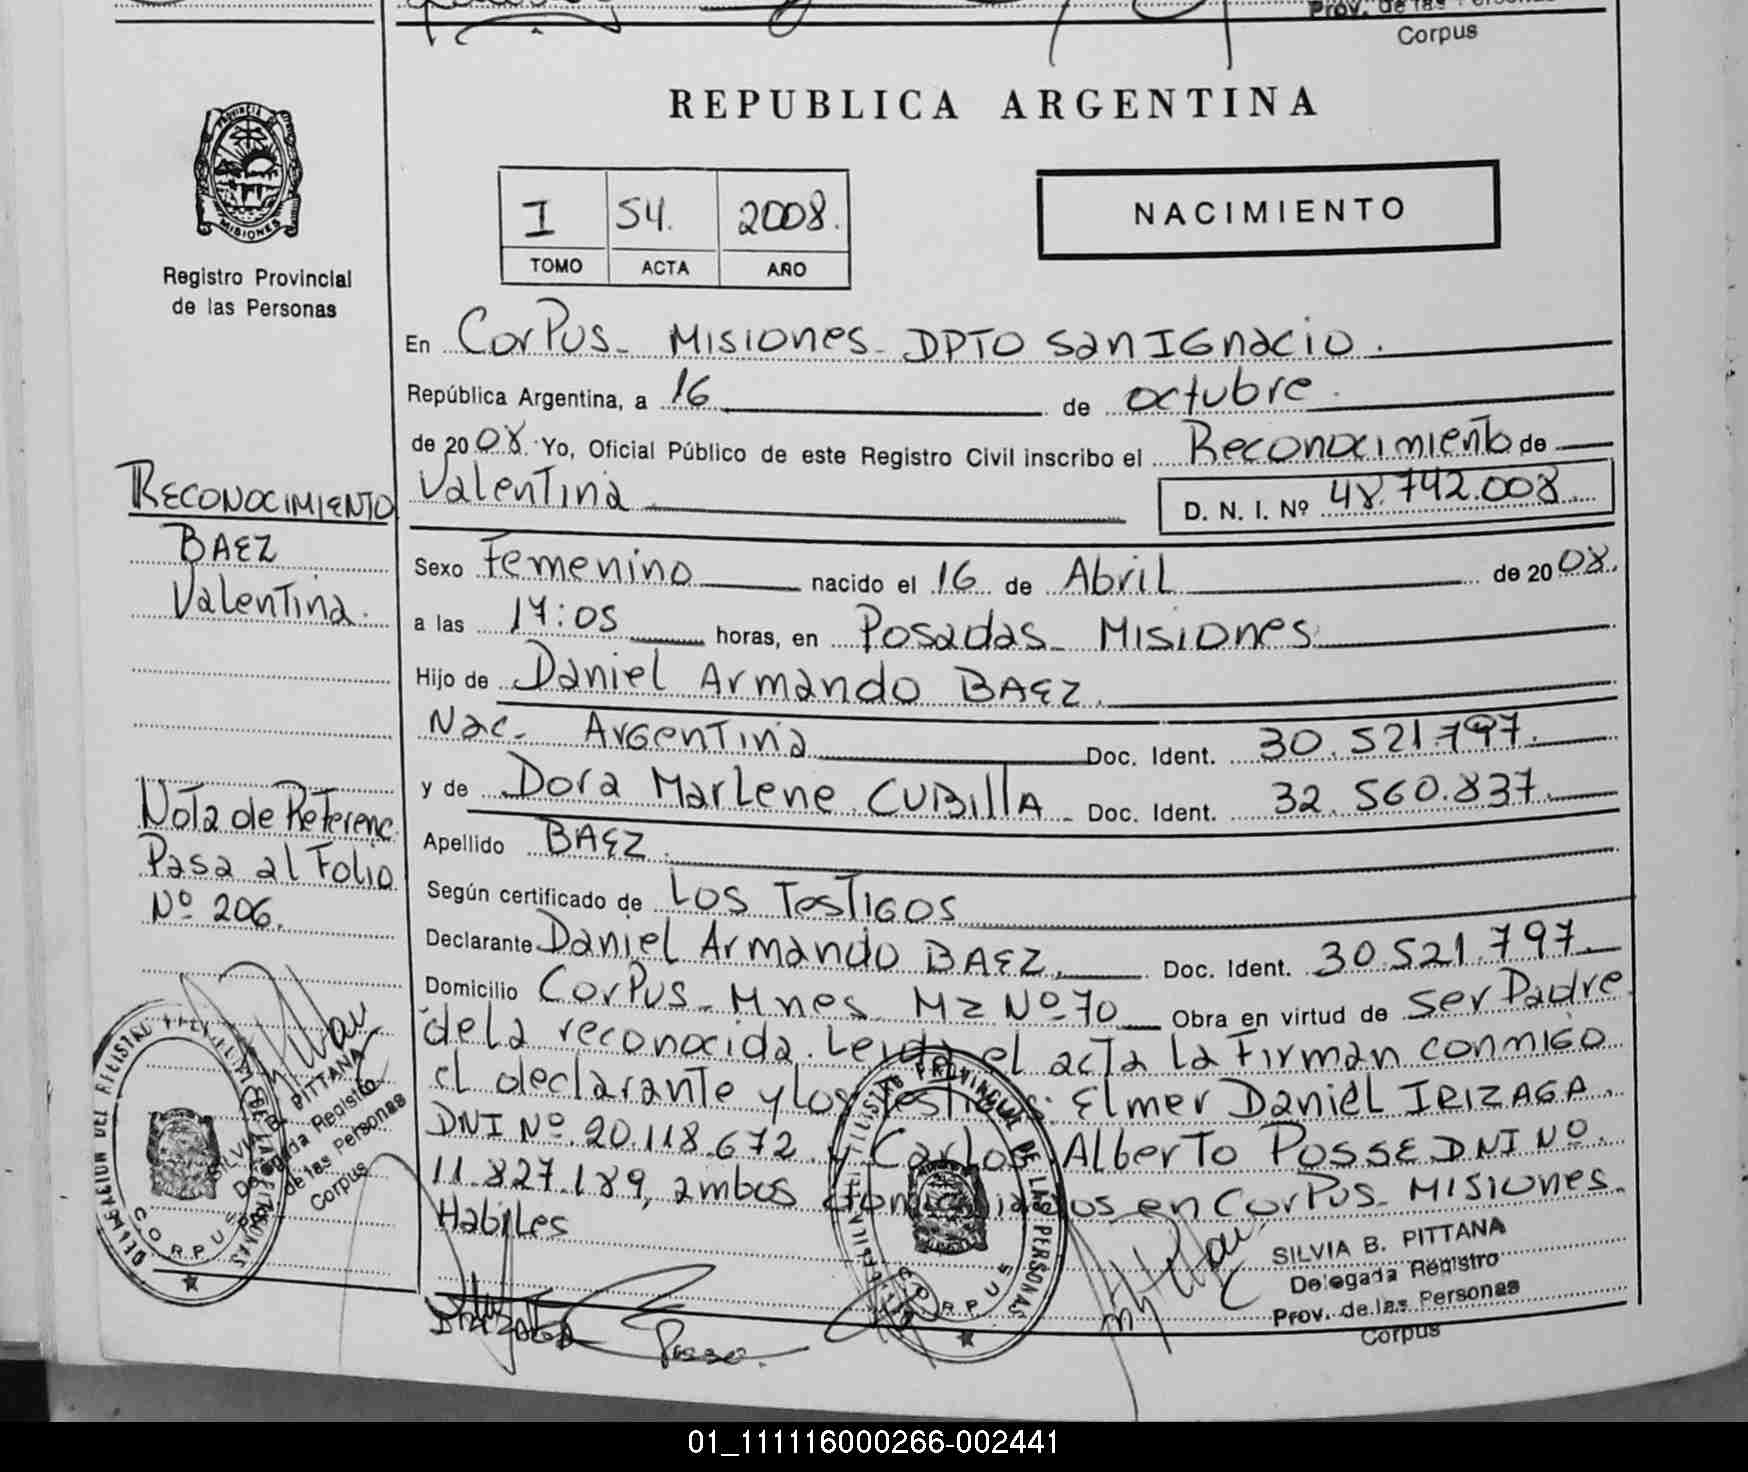 Prov. de las Personas
Corpus
REPUBLICA ARGENTINA
PROVINCIA DE
MISIONES
I 54. 2008.
TOMO ACTA AÑO
NACIMIENTO
Registro Provincial
de las Personas
En Corpus - Misiones - DPTO San Ignacio.
República Argentina, a 16 de octubre.
de 2008. Yo, Oficial Público de este Registro Civil inscribo el Reconocimiento de
Valentina D. N. I. Nº 48.742.008
RECONOCIMIENTO
BAEZ
Valentina.
Sexo Femenino nacido el 16 de Abril de 2008.
a las 17:05 horas, en Posadas - Misiones
Hijo de Daniel Armando BAEZ.
Nac. Argentina Doc. Ident. 30.521.797.
y de Dora Marlene CUBILLA - Doc. Ident. 32.560.837.
Apellido BAEZ.
Nota de Referenc.
Pasa al Folio
Nº 206.
Según certificado de Los Testigos
Declarante Daniel Armando BAEZ. Doc. Ident. 30.521.797.
Domicilio Corpus - Mnes Mz Nº 70 Obra en virtud de ser Padre
de la reconocida. Leida el acta la Firman conmigo
el declarante y los testigos: Elmer Daniel IRIZAGA.
DNI Nº 20.118.672 y Carlos Alberto POSSE DNI Nº
11.827.189, ambos domiciliados en Corpus - Misiones.
Habiles
SILVIA B. PITTANA
Delegada Registro
de las Personas
Corpus
CORPUS
PROVINCIAL DE LAS PERSONAS
CORPUS
SILVIA B. PITTANA
Delegada Registro
Prov. de las Personas
Corpus
IRIZAGA
Posse.
01_111116000266-002441